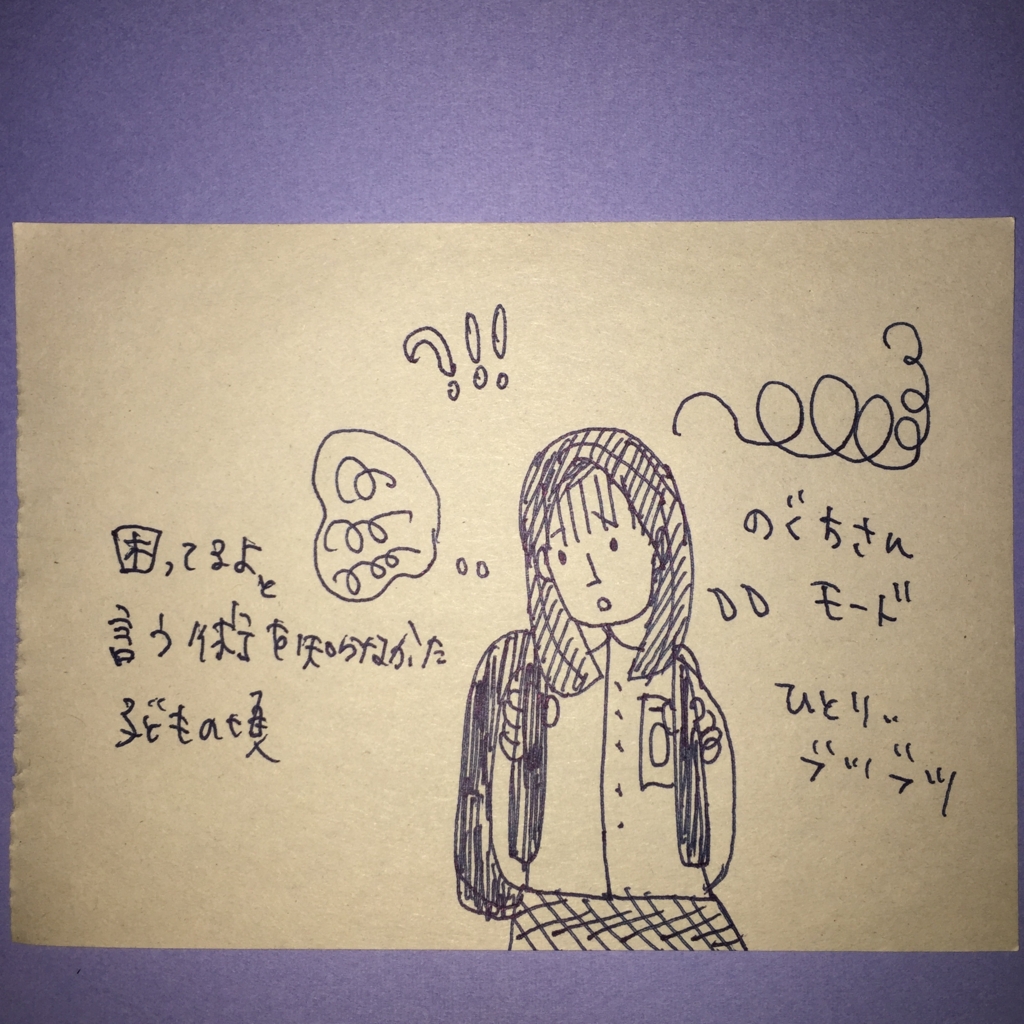 ?!!
困ってるよと
言う術を知らなかった
子どもの頃
のぐちさん
モード
ひとり..
ブツブツ